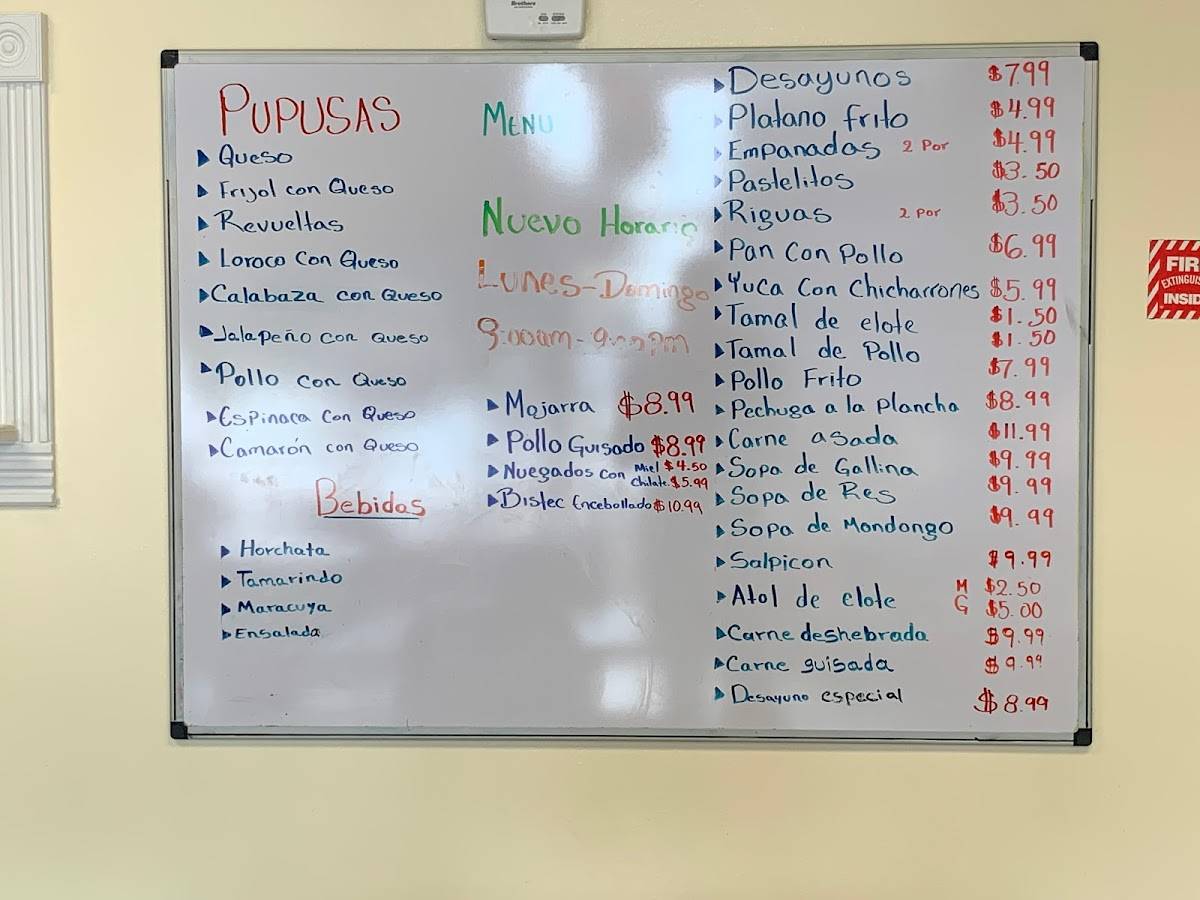 Brothers
PUPUSAS
Queso
Frijol con Queso
Revueltas
Loroco Con Queso
Calabaza con Queso
Jalapeño con Queso
Pollo con Queso
Espinaca Con Queso
Camarón con Queso
Bebidas
Horchata
Tamarindo
Maracuya
Ensalada
MENU
Nuevo Horario
Lunes-Domingo
9:00pm
Mojarra $8.99
Pollo Guisado $8.99
Nuegados con Miel $4.50
Chilate $5.99
Bistec Encebollado $10.99
Desayunos $7.99
Platano frito $4.99
Empanadas 2 Por $4.99
Pastelitos $3.50
Riguas 2 por $3.50
Pan Con Pollo $6.99
Yuca Con Chicharrones $5.99
Tamal de elote $1.50
Tamal de Pollo $1.50
Pollo Frito $7.99
Pechuga a la Plancha $8.99
Carne asada $11.99
Sopa de Gallina $9.99
Sopa de Res $9.99
Sopa de Mondongo $9.99
Salpicon $9.99
Atol de elote M $2.50
G $5.00
Carne deshebrada $9.99
Carne guisada $9.99
Desayuno especial $8.99
FIR
EXTINGUIS
INSID